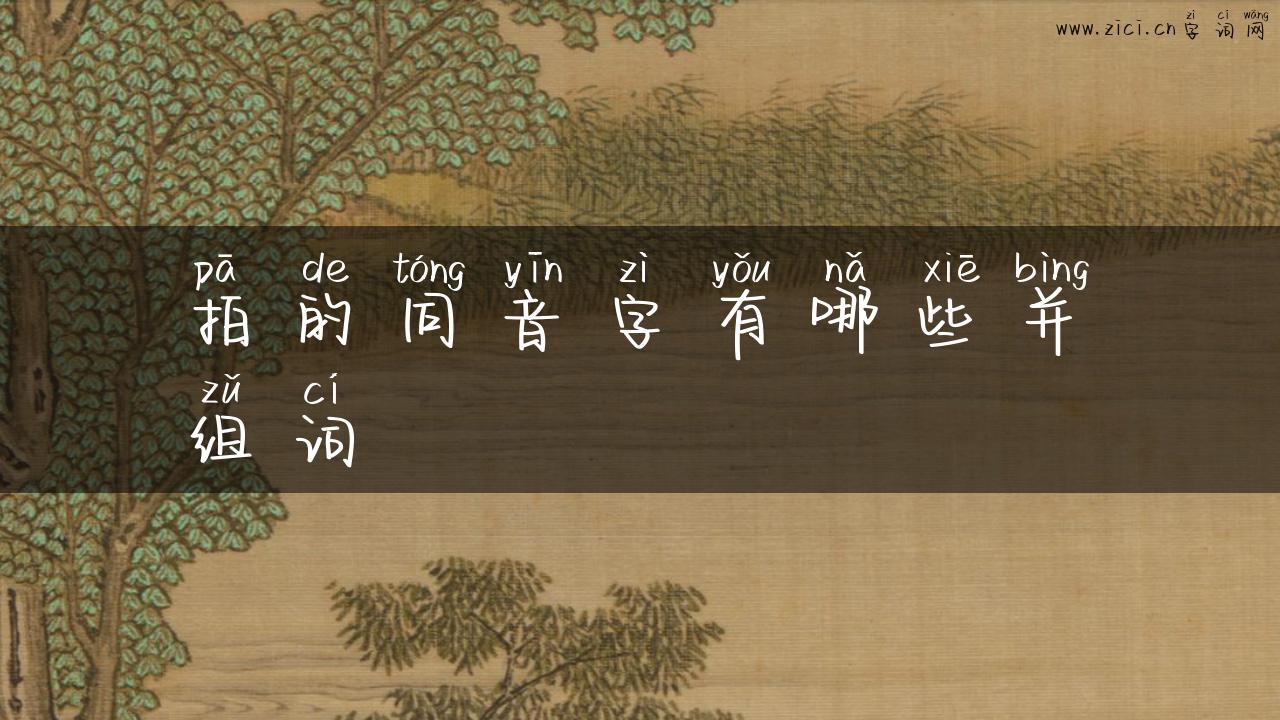 zì cí wǎng
www.zici.cn 字词网
pā de tóng yīn zì yǒu nǎ xiē bìng
拍的同音字有哪些并
zǔ cí
组词